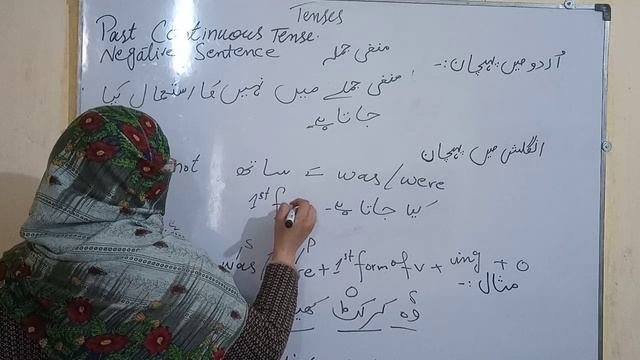 Tenses
Past Continuous Tense.
Negative Sentence منفی جملہ
اُردو میں پہچان :-
منفی جملے میں نہیں کا استعمال کیا
جاتا ہے
انگلش میں پہچان
was/were کے ساتھ not
کیا جاتا ہے۔ 1st f
S P
was re + 1st form of v + ing + O
مثال :-
O
وہ کرکٹ